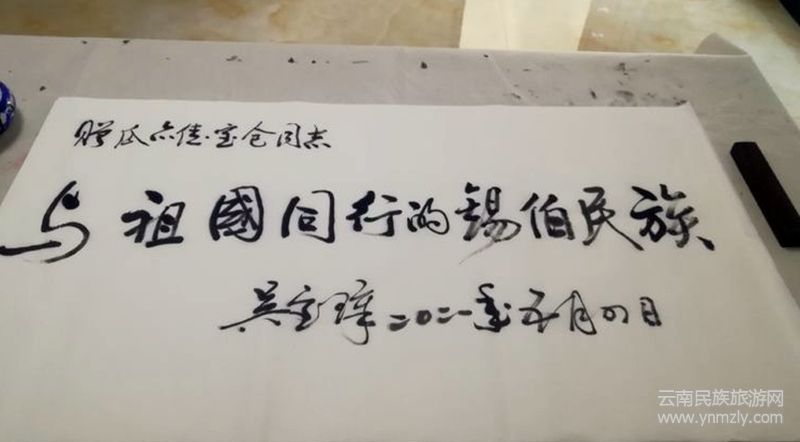 赠瓜尔佳·宝仓同志
与祖國同行的锡伯民族
吴宝璋二〇二一年五月四日
云南民族旅游网
www.ynmzly.com